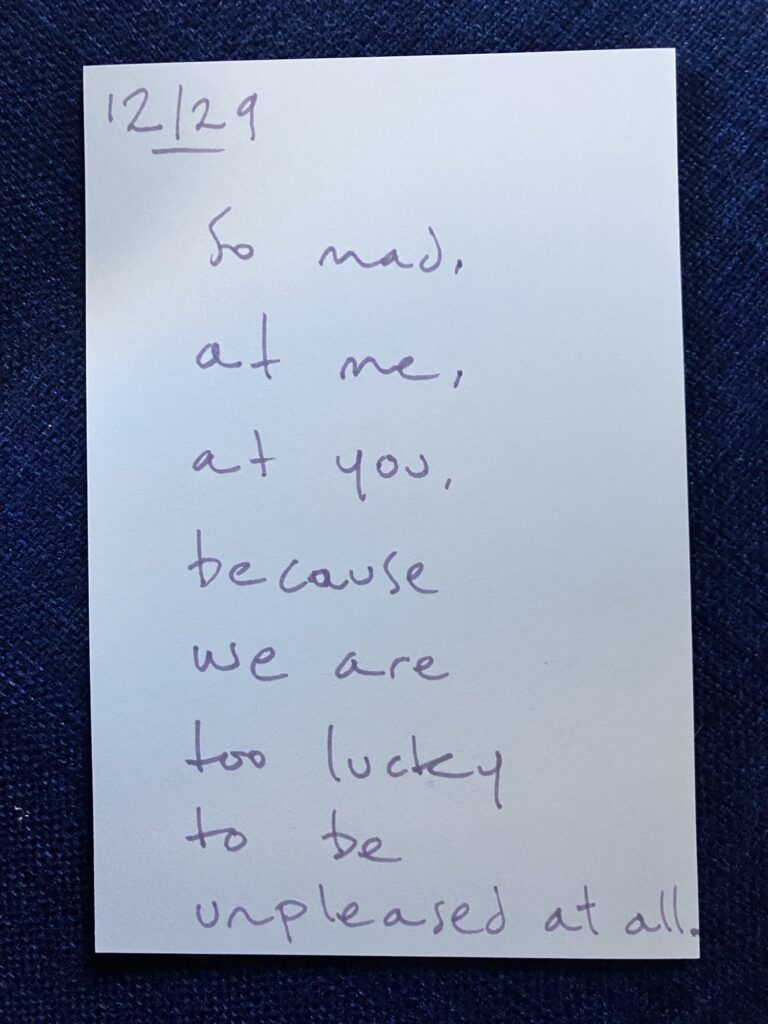 12/29
So mad,
at me,
at you,
because
we are
too lucky
to be
unpleased at all.